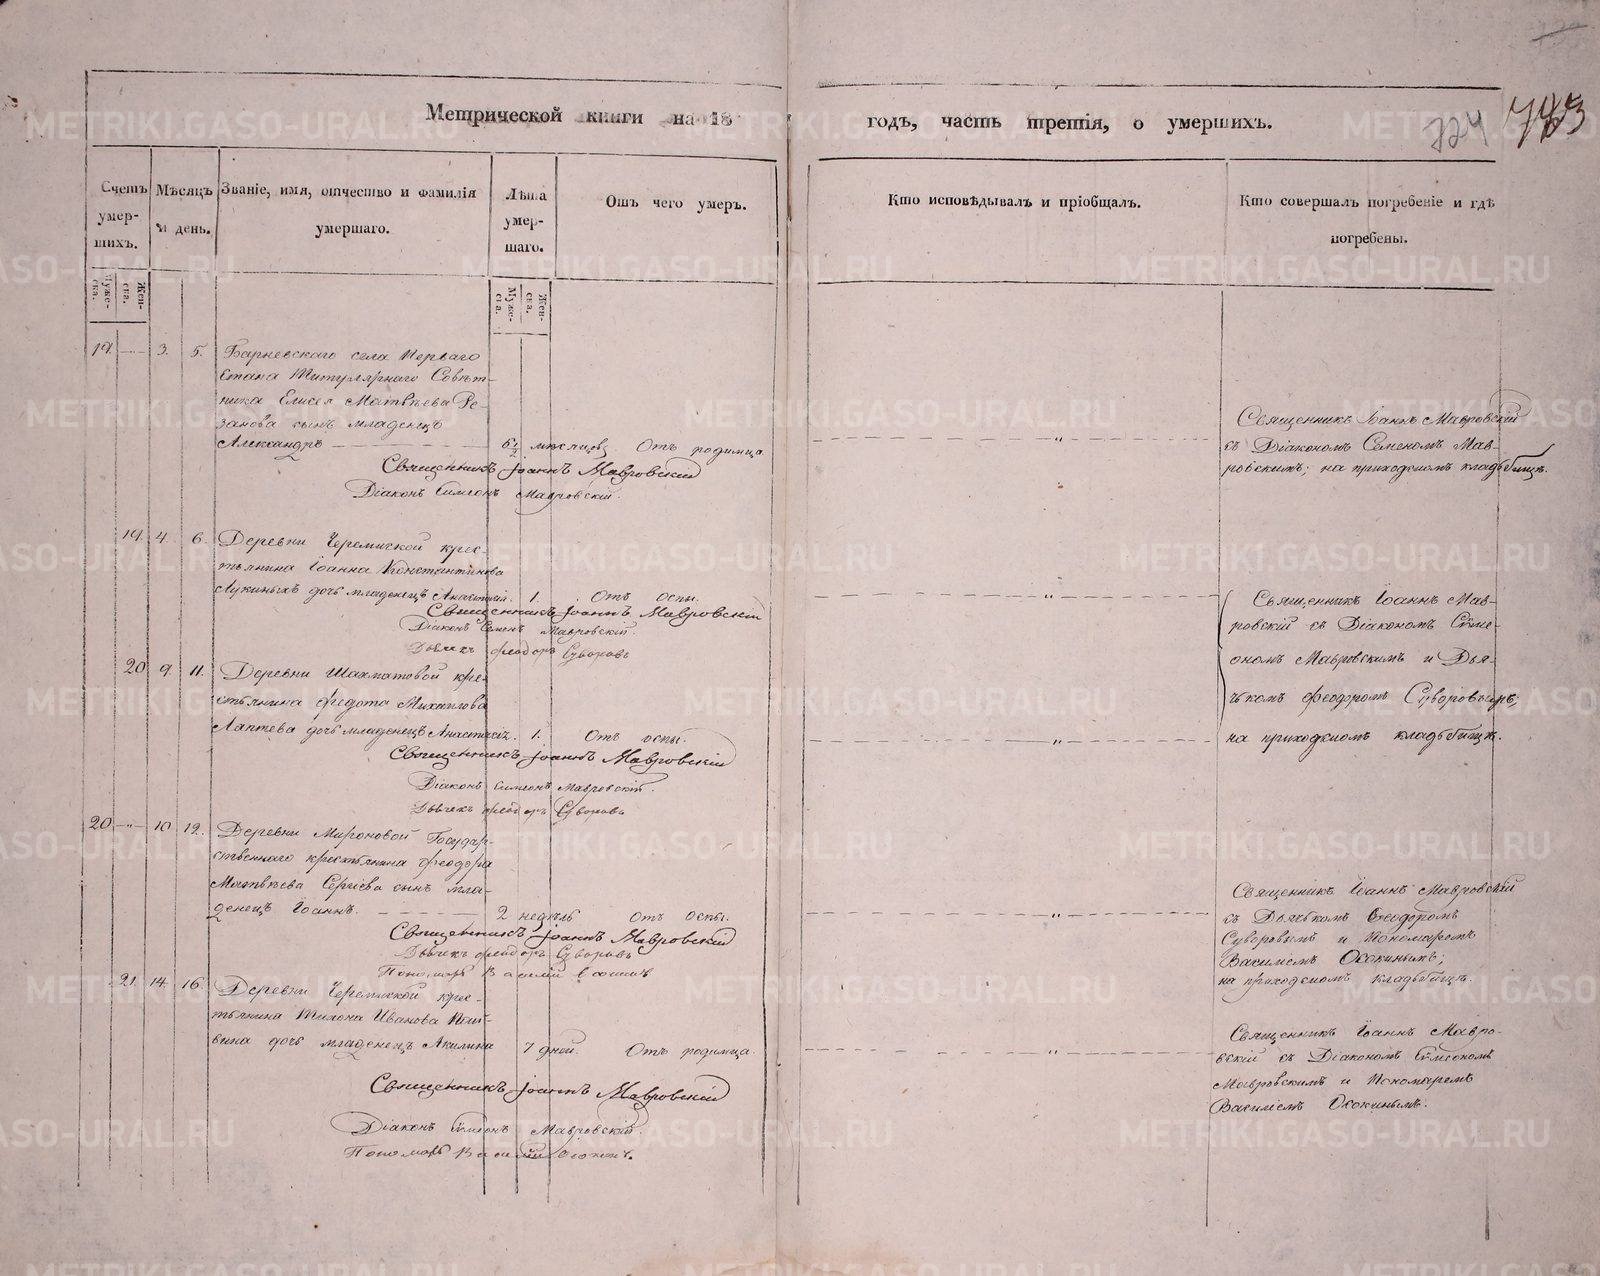 Метрической книги на 18 годъ, часть третія, о умершихъ.
724 783
Счетъ умер-шихъ.
Мѣсяцъ и день.
Званіе, имя, отчество и фамилія умершаго.
Лѣта умер-шаго.
Отъ чего умеръ.
Кто исповѣдывалъ и пріобщалъ.
Кто совершалъ погребеніе и гдѣ погребены.
Муже-ска. Жен-ска.
Муже-ска. Жен-ска.
19. 3. 5. Барневскаго села Перваго
Стана Титулярнаго Совѣт-
ника Елисея Матвѣева Ре-
занова сынъ младенецъ
Александръ 6½ мѣсяцов. Отъ родимца
Священникъ Іоаннъ Мавровскій
Діаконъ Симеон Мавровскій.
Священникъ Іоаннъ Мавровскій
съ Діакономъ Семеномъ Мав-
ровскимъ; на приходскомъ кладбищѣ.
19. 4. 6. Деревни Черемиской крес-
тьянина Іоанна Константинова
Лукиныхъ дочь младенецъ Анастасія. 1. Отъ оспы.
Священникъ Іоаннъ Мавровскій
Діаконъ Семенъ Мавровскій.
Дьячекъ Феодоръ Суворовъ
20 9 11. Деревни Шахматовой кре-
стьянина Федота Михайлова
Лаптева дочь младенецъ Анастасія. 1. Отъ оспы.
Священникъ Іоаннъ Мавровскій
Діаконъ Симеонъ Мавровскій.
Дьячекъ Феодоръ Суворовъ
Священникъ Іоаннъ Мав-
ровскій съ Діакономъ Симе-
ономъ Мавровскимъ и Дья-
чкомъ Феодоромъ Суворовымъ;
на приходскомъ кладбищѣ.
20 10 12. Деревни Мироновой Государ-
ственнаго крестьянина Феодора
Матвѣева Сергіева сынъ мла-
денецъ Іоаннъ. 2 недѣль Отъ оспы.
Священникъ Іоаннъ Мавровскій
Дьячекъ Феодоръ Суворовъ
Пономарь Василій
Священникъ Іоаннъ Мавровскій
съ Дьячкомъ Феодоромъ
Суворовымъ и Пономаремъ
Василіемъ Ососкинымъ;
на приходскомъ кладбищѣ.
21. 14. 16. Деревни Черемиской крес-
тьянина Тихона Иванова
дочь младенецъ Акилина 7 дней. Отъ родимца.
Священникъ Іоаннъ Мавровскій
Діаконъ Симеон Мавровскій.
Пономарь Василій
Священникъ Іоаннъ Мавро-
вскій съ Діакономъ Симеономъ
Мавровскимъ и Пономаремъ
Василіемъ Ососкинымъ.
METRIKI.GASO-URAL.RU